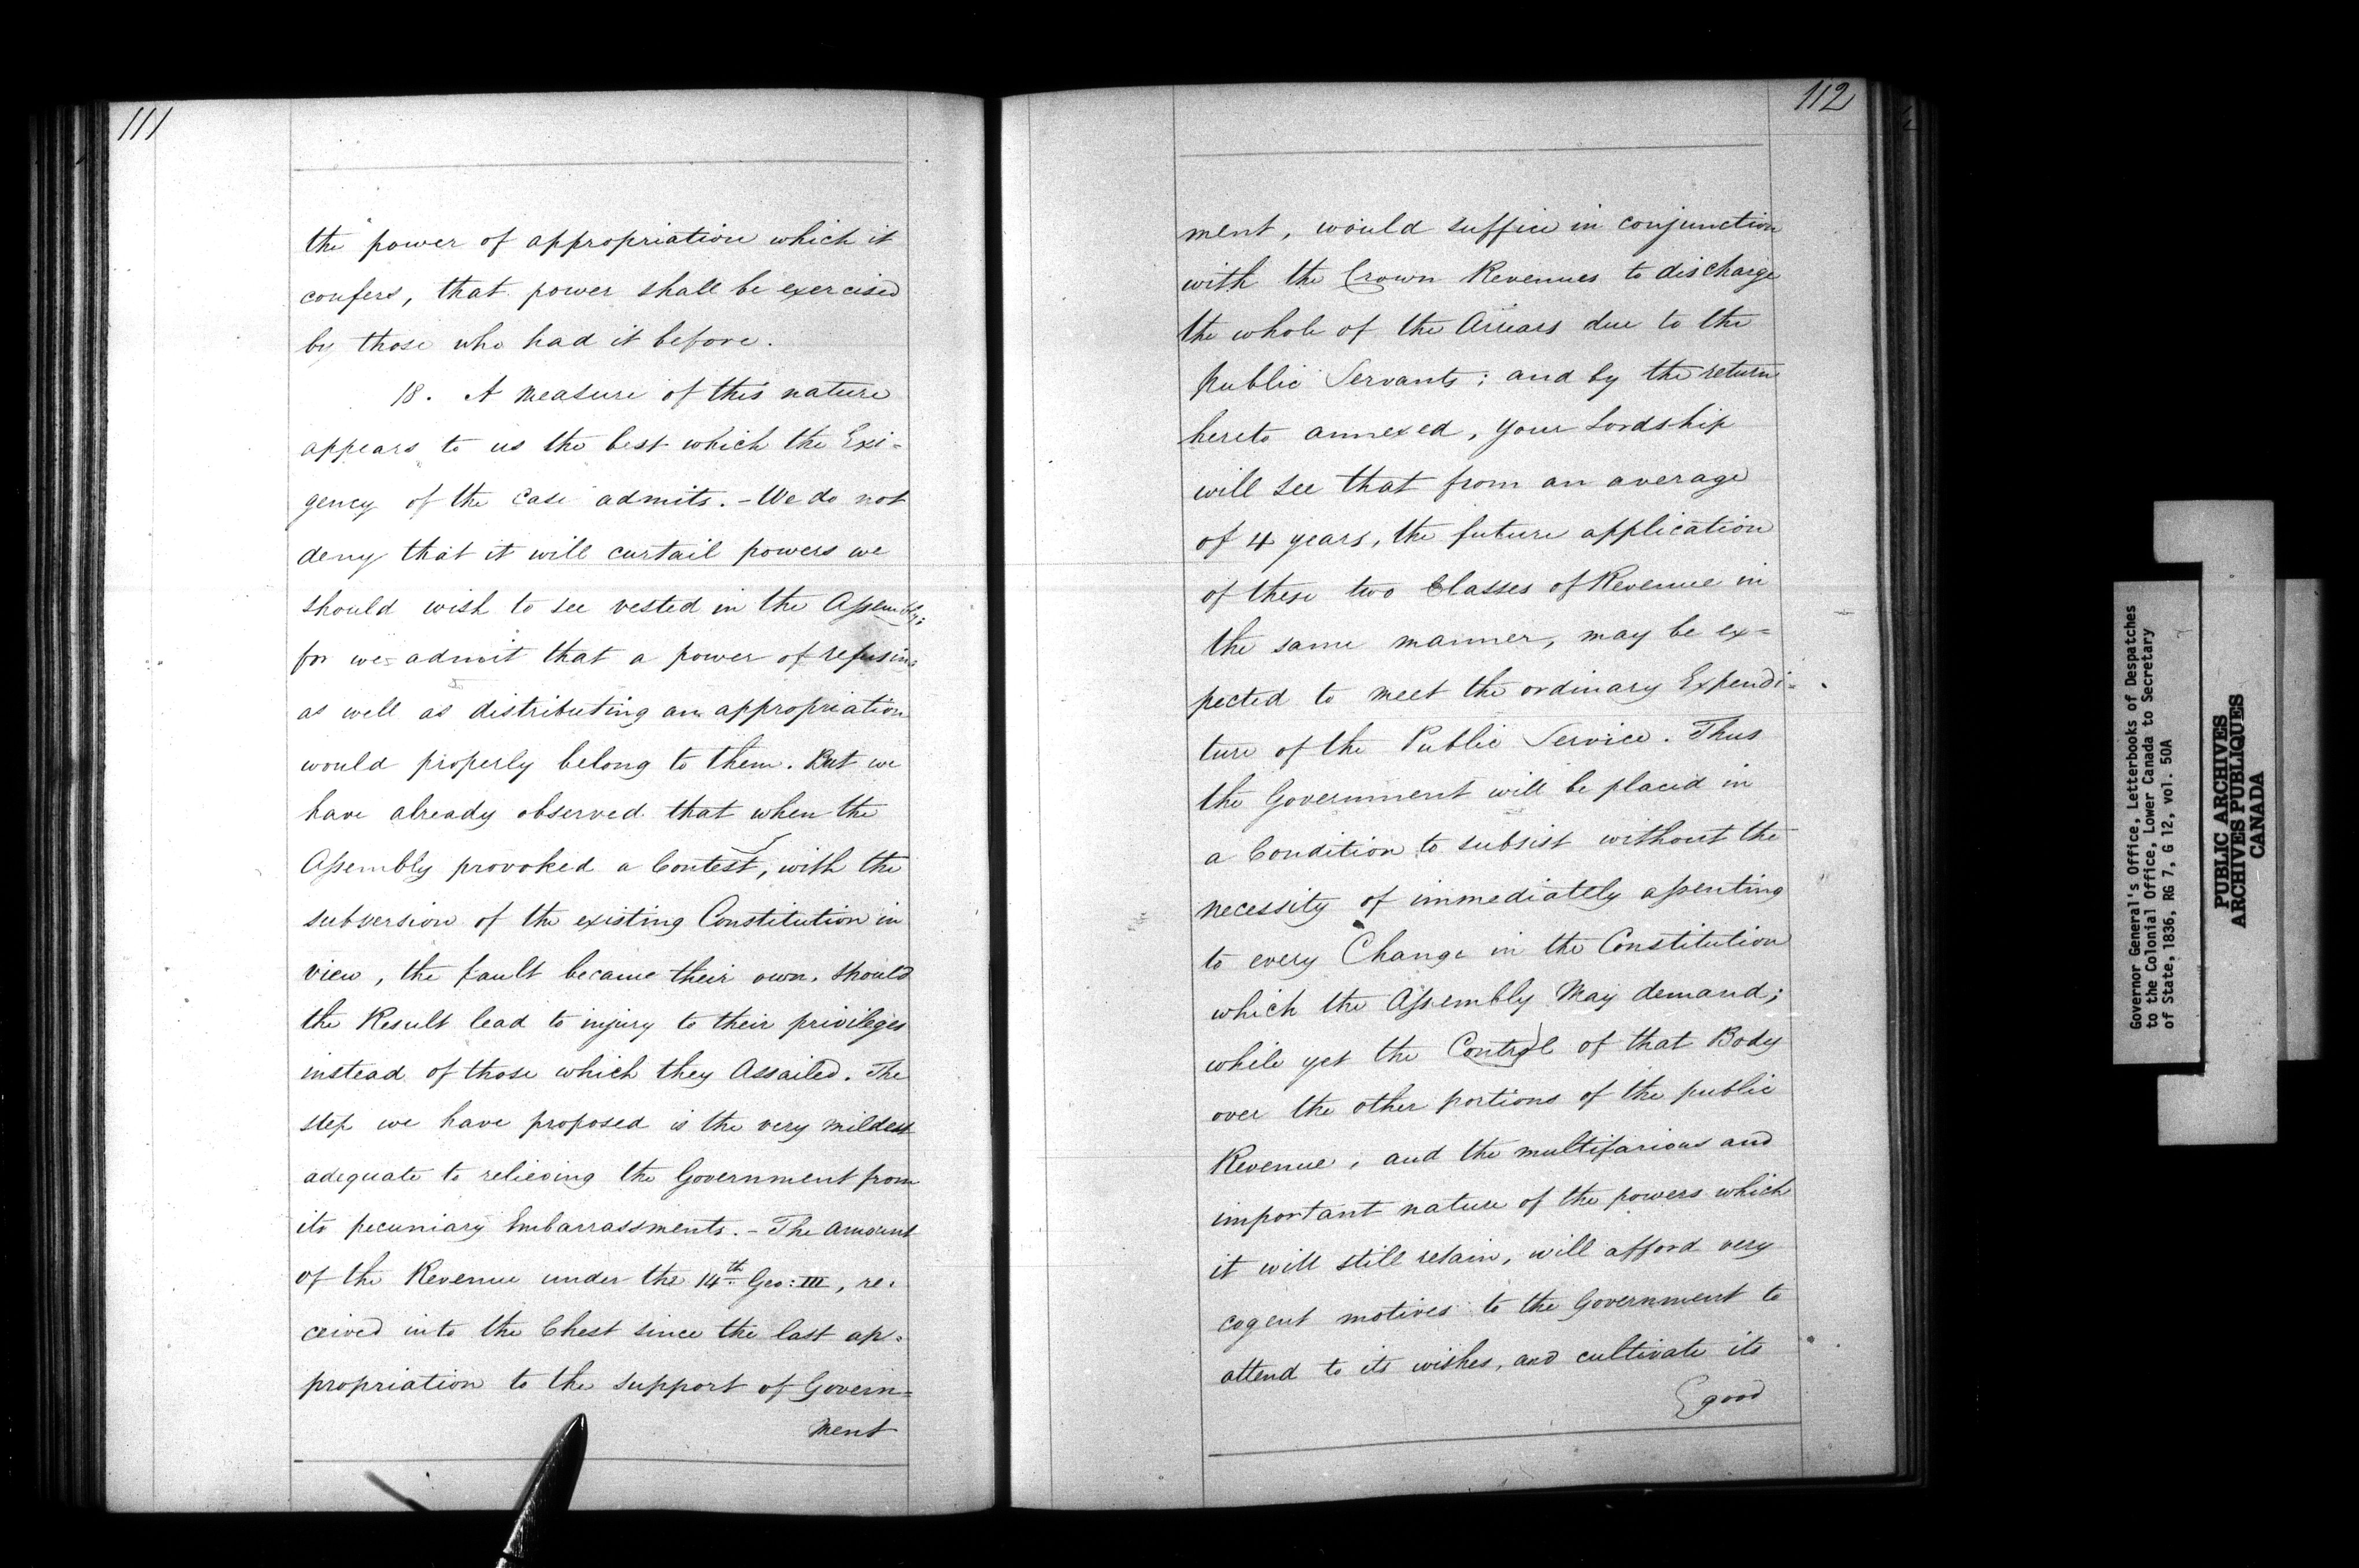 111
the power of appropriation which it
confers, that power shall be exercised
by those who had it before.
18. A measure of this nature
appears to us the best which the Exi=
gency of the Case admits. - We do not
deny that it will curtail powers we
should wish to see vested in the Assembly;
for we admit that a power of refusing
as well as distributing an appropriation
would properly belong to them. But we
have already observed that when the
Assembly provoked a Contest, with the
subversion of the existing Constitution in
view, the fault became their own, should
the Result lead to injury to their privileges
instead of those which they Assailed. The
step we have proposed is the very mildest
adequate to relieving the Government from
its pecuniary Embarrassments. - The amount
of the Revenue under the 14th Geo: III, re=
ceived into the Chest since the last ap=
propriation to the support of Govern=
ment
112
ment, would suffice in conjunction
with the Crown Revenues to discharge
the whole of the Arrears due to the
public Servants; and by the return
hereto annexed, your Lordship
will see that from an average
of 4 years, the future application
of these two Classes of Revenue in
the same manner, may be ex=
pected to meet the ordinary Expendi=
ture of the Public Service. Thus
the Government will be placed in
a Condition to subsist without the
necessity of immediately assenting
to every Change in the Constitution
which the Assembly May demand;
while yet the Control of that Body
over the other portions of the public
Revenue, and the multifarious and
important nature of the powers which
it will still retain, will afford very
cogent motives to the Government to
attend to its wishes, and cultivate its
good
Governor General's Office, Letterbooks of Despatches
to the Colonial Office, Lower Canada to Secretary
of State, 1836, RG 7, G 12, vol. 50A
PUBLIC ARCHIVES
ARCHIVES PUBLIQUES
CANADA